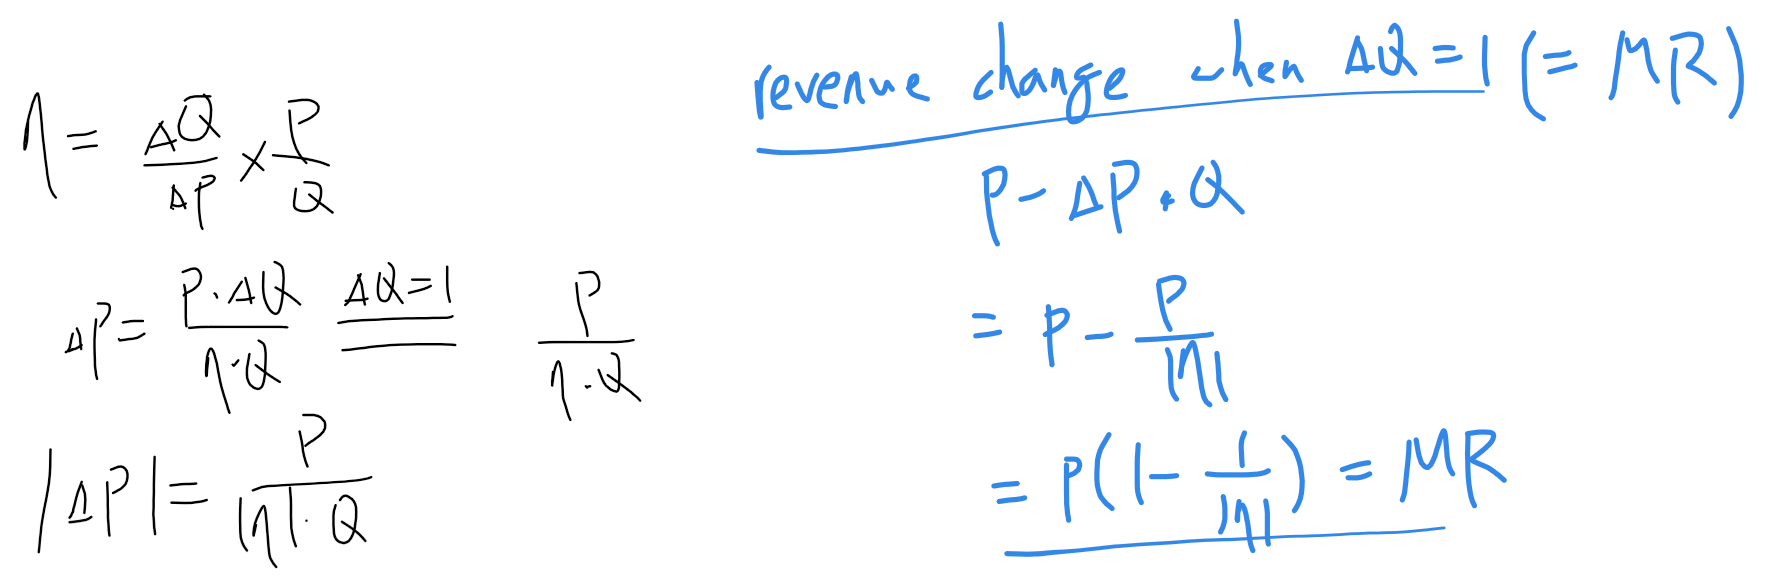 η = ΔQ/ΔP × P/Q
ΔP = P·ΔQ/η·Q ΔQ=1 P/η·Q
|ΔP| = P/|η|·Q
revenue change when ΔQ = 1 (= MR)
P - ΔP · Q
= P - P/|η|
= P(1 - 1/|η|) = MR